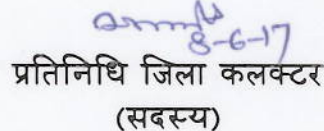 8-6-17
प्रतिनिधि जिला कलक्टर
(सदस्य)